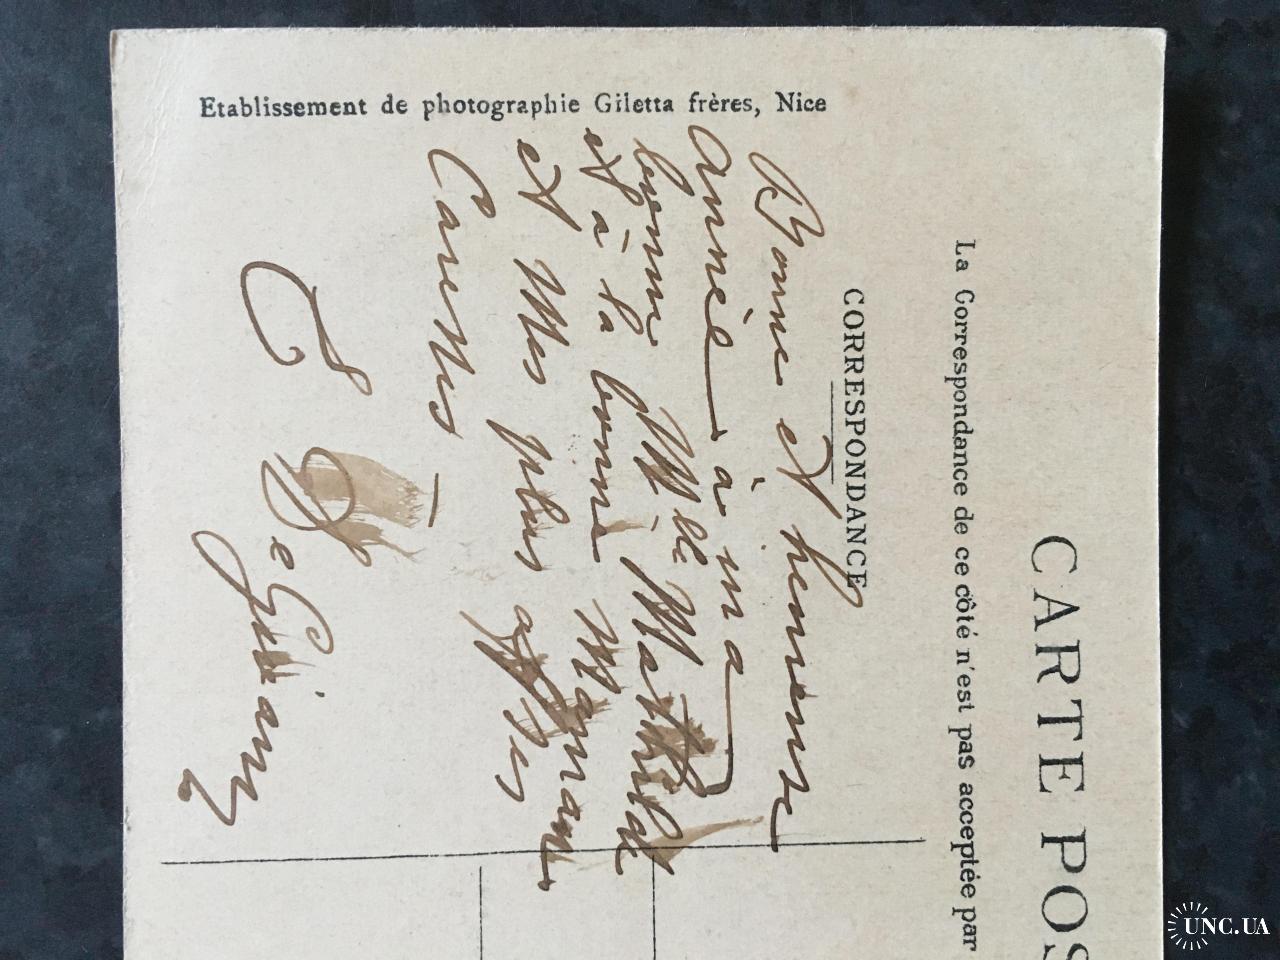 CARTE POS
La Correspondance de ce côté n'est pas acceptée par
CORRESPONDANCE
Bonne et heureuse
année à ma
bonne Mlle Mathilde
et à la bonne Maman
et Mes plus affes
Carttes
Etablissement de photographie Giletta frères, Nice
UNC.UA